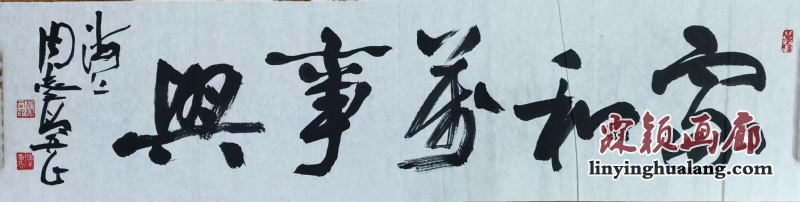 家和萬事興
海上
霖颖画廊
linyinghualang.com